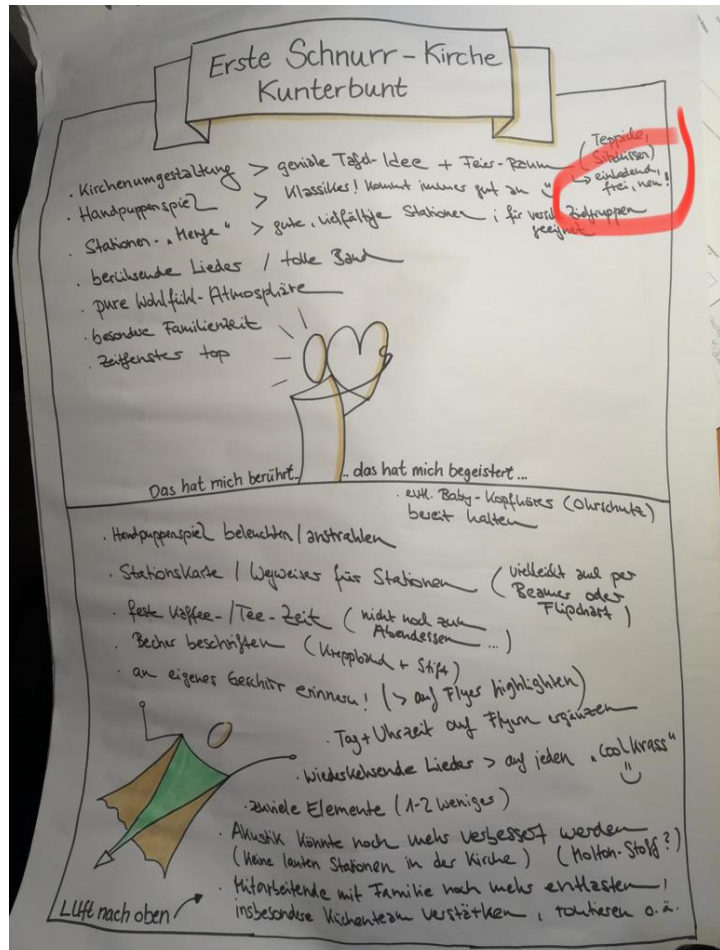 Erste Schnurr-Kirche
Kunterbunt
· Kirchenumgestaltung > geniale Tafel-Idee + Feier-Raum (Teppiche,
Sitzkissen)
↳ einladend,
frei, neu!
· Handpuppenspiel > Klassiker! kommt immer gut an "
· Stationen-"Menge" > gute, vielfältige Stationen; für versch. Zielgruppen
geeignet
· berührende Lieder / tolle Band
· pure Wohlfühl-Atmosphäre
· besondere Familienzeit
· Zeitfenster top
Das hat mich berührt... ... das hat mich begeistert...
· evtl. Baby-Kopfhörer (Ohrschutz)
bereit halten
· Handpuppenspiel beleuchten/anstrahlen
· Stationskarte / Wegweiser für Stationen (vielleicht auch per
Beamer oder
Flipchart)
· feste Kaffee-/Tee-Zeit (nicht noch zum
Abendessen ...)
· Becher beschriften (Kreppband + Stift)
· an eigenes Geschirr erinnern! (> auf Flyer highlighten)
· Tag + Uhrzeit auf Flyern ergänzen
· wiederkehsende Lieder > auf jeden „Coolkrass"
· zuviele Elemente (1-2 weniger)
· Akustik könnte noch mehr verbessert werden
(keine lauten Stationen in der Kirche) (Molton-Stoff?)
· Mitarbeitende mit Familie noch mehr entlasten,
insbesondere Küchenteam verstärken, rotieren o.ä.
Luft nach oben